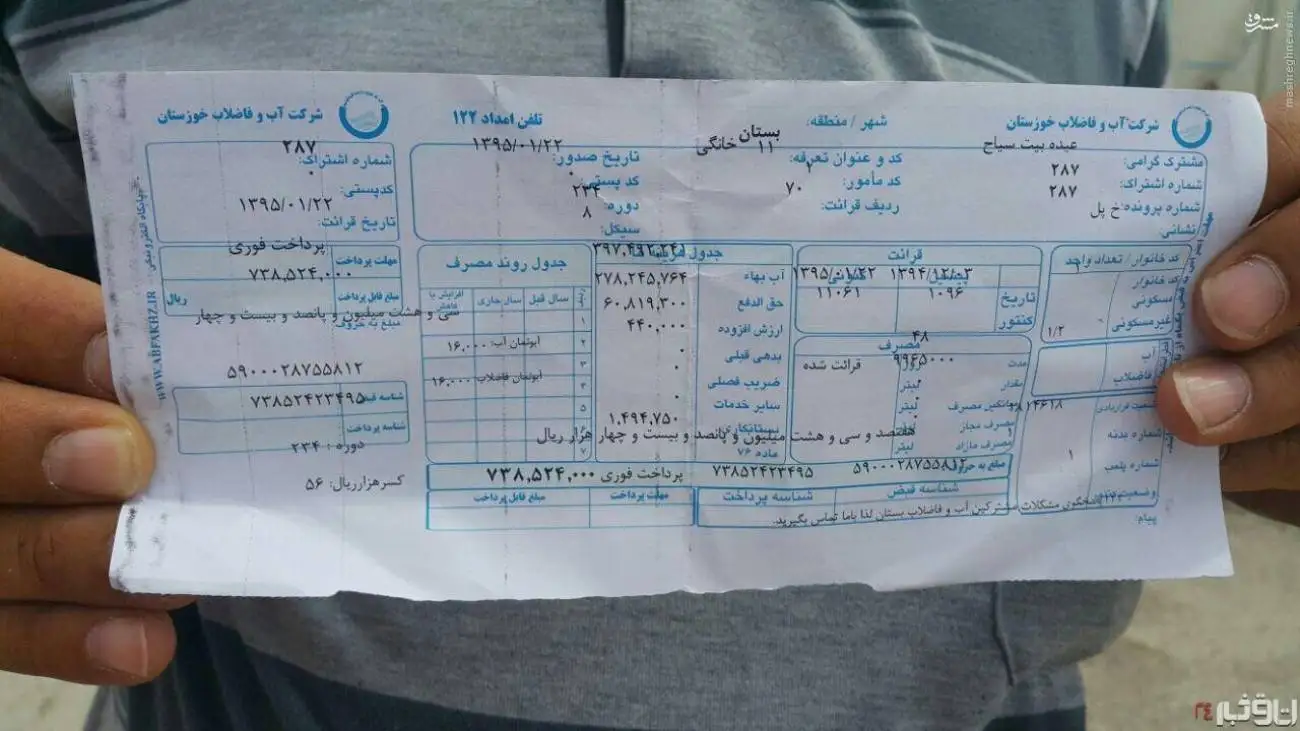 مشرق
mashreghnews.ir
شرکت آب و فاضلاب خوزستان
عبده بیت سیاح
مشترک گرامی:
۲۸۷
شماره اشتراک:
۲۸۷
شماره پرونده: خ پل
نشانی:
شهر / منطقه:
بستان
کد و عنوان تعرفه:
۱۱ خانگی
کد مأمور:
ردیف قرائت:
۷۰
تلفن امداد ۱۲۲
۱۳۹۵/۰۱/۲۲
تاریخ صدور:
کد پستی:
۲۳۴
دوره:
۸
سیکل:
شرکت آب و فاضلاب خوزستان
۲۸۷
شماره اشتراک:
کدپستی:
۱۳۹۵/۰۱/۲۲
تاریخ قرائت:
پرداخت فوری
مهلت پرداخت
۷۳۸,۵۲۴,۰۰۰
مبلغ قابل پرداخت
ریال
سی و هشت میلیون و پانصد و بیست و چهار
مبلغ به حروف
۵۹۰۰۰۲۸۷۵۵۸۱۲
۷۳۸۵۲۴۲۳۴۹۵
شناسه پرداخت
دوره: ۲۳۴
کسر هزار ریال: ۵۶
WWW.ABFAKHZ.IR
کد خانوار / تعداد واحد
کد خانوار
مسکونی
غیرمسکونی
۱/۲
آب
فاضلاب
شماره بدنه
۱
شماره پلمب
پیام:
قرائت
۱۳۹۴/۱۲/۰۳
۱۳۹۵/۰۱/۲۲
تاریخ
کنتور
۱۰۹۶
۱۱۰۶۱
۴۸
مصرف
مدت
روز
۹۹۶۵۰۰۰
قرائت شده
مقدار
لیتر
میانگین مصرف
لیتر
مصرف مجاز
لیتر
مصرف مازاد
لیتر
آب بهاء
۲۷۸,۲۴۵,۷۶۴
حق الدفع
۶۰,۸۱۹,۳۰۰
ارزش افزوده
۴۴۰,۰۰۰
بدهی قبلی
۰
ضریب فصلی
۰
سایر خدمات
۱,۴۹۴,۷۵۰
بستانکاری
ماده ۷۶
هفتصد و سی و هشت میلیون و پانصد و بیست و چهار هزار ریال
جدول روند مصرف
سال قبل
سال جاری
۱
۲
ابونمان آب: ۱۶,۰۰۰
۳
۴
ابونمان فاضلاب ۱۶,۰۰۰
۵
۷
مبلغ به حروف
۵۹۰۰۰۲۸۷۵۵۸۱۲
۷۳۸۵۲۴۲۳۴۹۵
پرداخت فوری ۷۳۸,۵۲۴,۰۰۰
شناسه قبض
شناسه پرداخت
مهلت پرداخت
مبلغ قابل پرداخت
مشکلات مشترکین آب و فاضلاب بستان لذا باما تماس بگیرید.